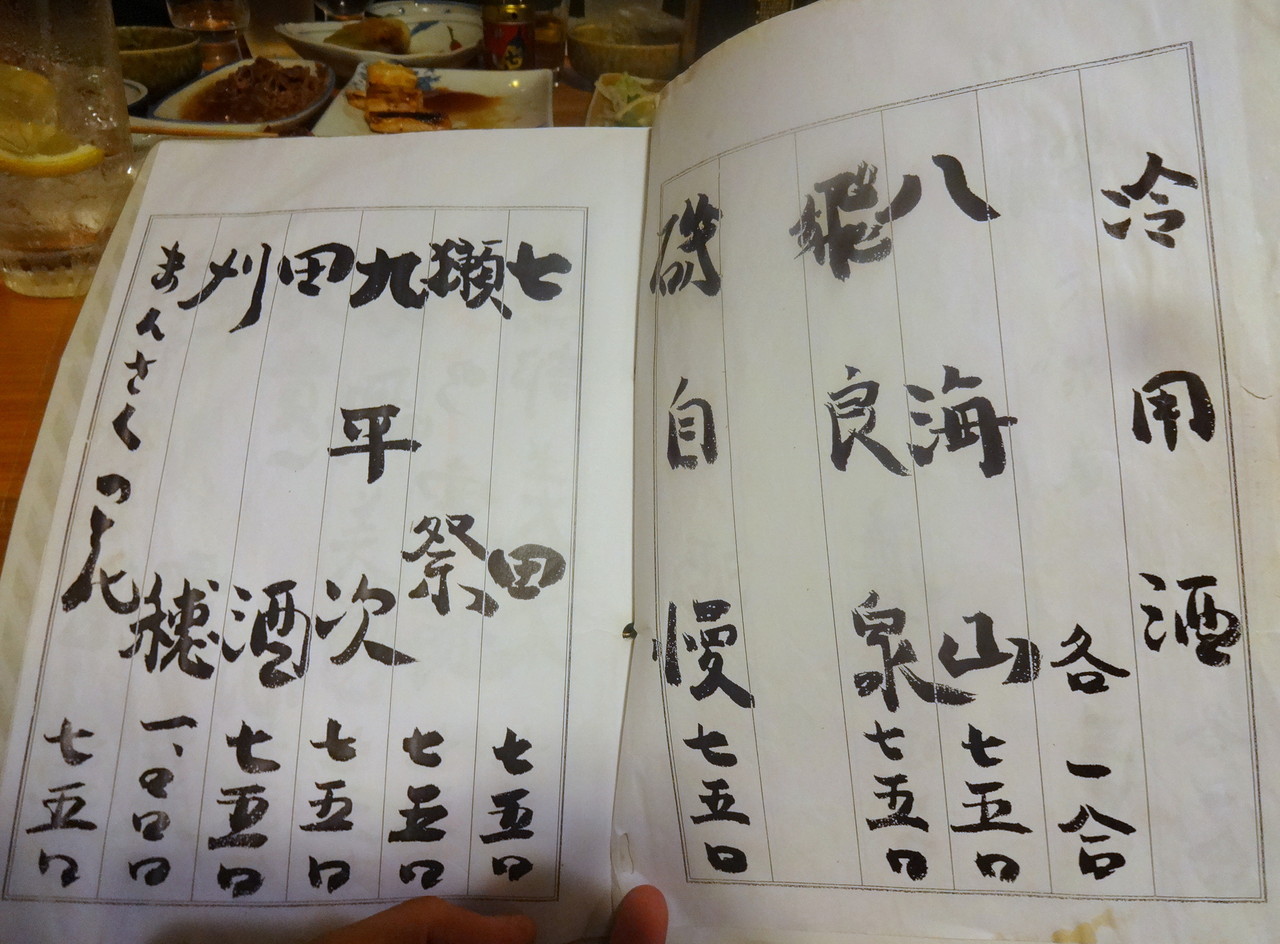 冷用酒
各一合
八海山 七五〇
飛良泉 七五〇
磯自慢 七五〇
七田 七五〇
獺祭 七五〇
九平次 七五〇
田酒 七五〇
刈穂 一、〇〇〇
まんさくの花 七五〇